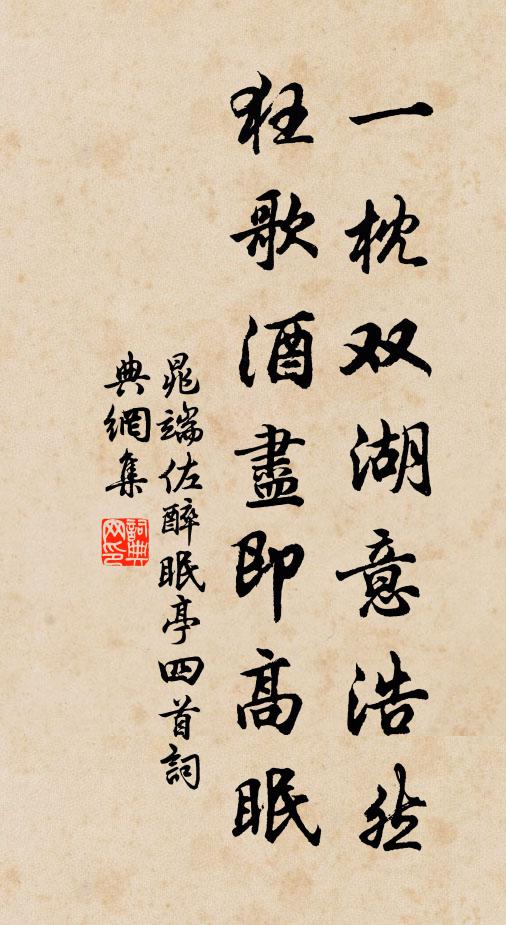 一枕双湖意浩然
狂歌酒盡即高眠
晁端佐醉眠亭四首詞
典網集
詞典網印